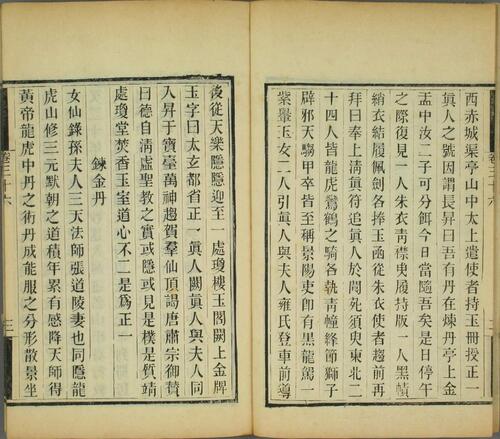 西赤城渠亭山中太上遣使者持玉冊授正一
眞人之號因謂長昇曰吾有丹在煉丹亭上金
盂中汝二子可分餌今日當隨吾矣是日停午
之際復見一人朱衣青襟臾履持版一人黑幘
綃衣結履佩劍各捧玉函從朱衣使者趨前再
拜曰奉上淸眞符追眞人於閬苑須臾東北二
十四人皆龍虎鸞鶴之騎各執青幢絳節獅子
辟邪天騶甲卒皆至稱景陽吏卽有黑龍駕一
紫轝玉女二人引眞人與夫人雍氏登車前導
後從天樂隱隱迎至一處瓊樓玉閣闕上金牌
玉字曰太玄都省正一眞人闕眞人與夫人同
入昇于寶臺萬神趨賀羣仙頂謁唐肅宗御贊
曰德自淸虛聖教之實或隱或見是樸是質靖
處瓊堂焚香玉室道心不二是爲正一
鍊金丹
女仙錄孫夫人三天法師張道陵妻也同隱龍
虎山修三元默朝之道積年累有感降天師得
黃帝龍虎中丹之術丹成能服之分形散景坐
卷三十六
三
卷三十六
三